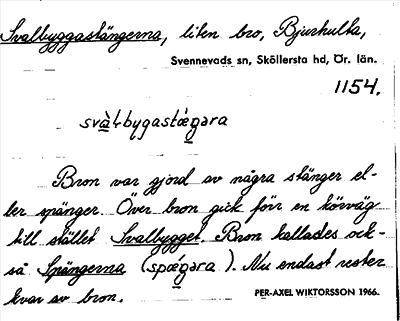 Svalbyggastängerna, liten bro, Bjurhulta,
Svennevads sn, Sköllersta hd, Ör. län.
1154.
svàɫbygastæ̀ŋəra
Bron var gjord av några stänger el-
ler spänger. Över bron gick förr en körväg
till stället Svalbygget. Bron kallades ock-
så Spängerna (spæ̀ŋəra). Nu endast rester
kvar av bron.
PER-AXEL WIKTORSSON 1966.